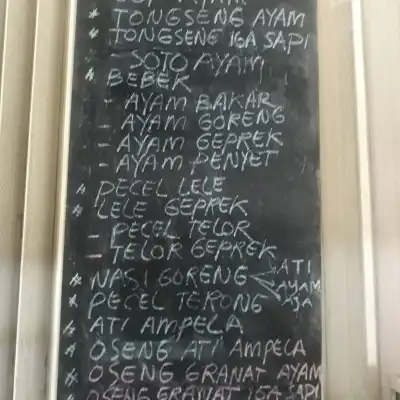 * TONGSENG AYAM
* TONGSENG IGA SAPI
- SOTO AYAM
* BEBEK
- AYAM BAKAR
- AYAM GORENG
- AYAM GEPREK
- AYAM PENYET
* PECEL LELE
* LELE GEPREK
- PECEL TELOR
- TELOR GEPREK
* NASI GORENG < ATI
AYAM
AJA
* PECEL TERONG
* ATI AMPELA
* OSENG ATI AMPELA
* OSENG GRANAT AYAM
* OSENG GRANAT IGA SAPI